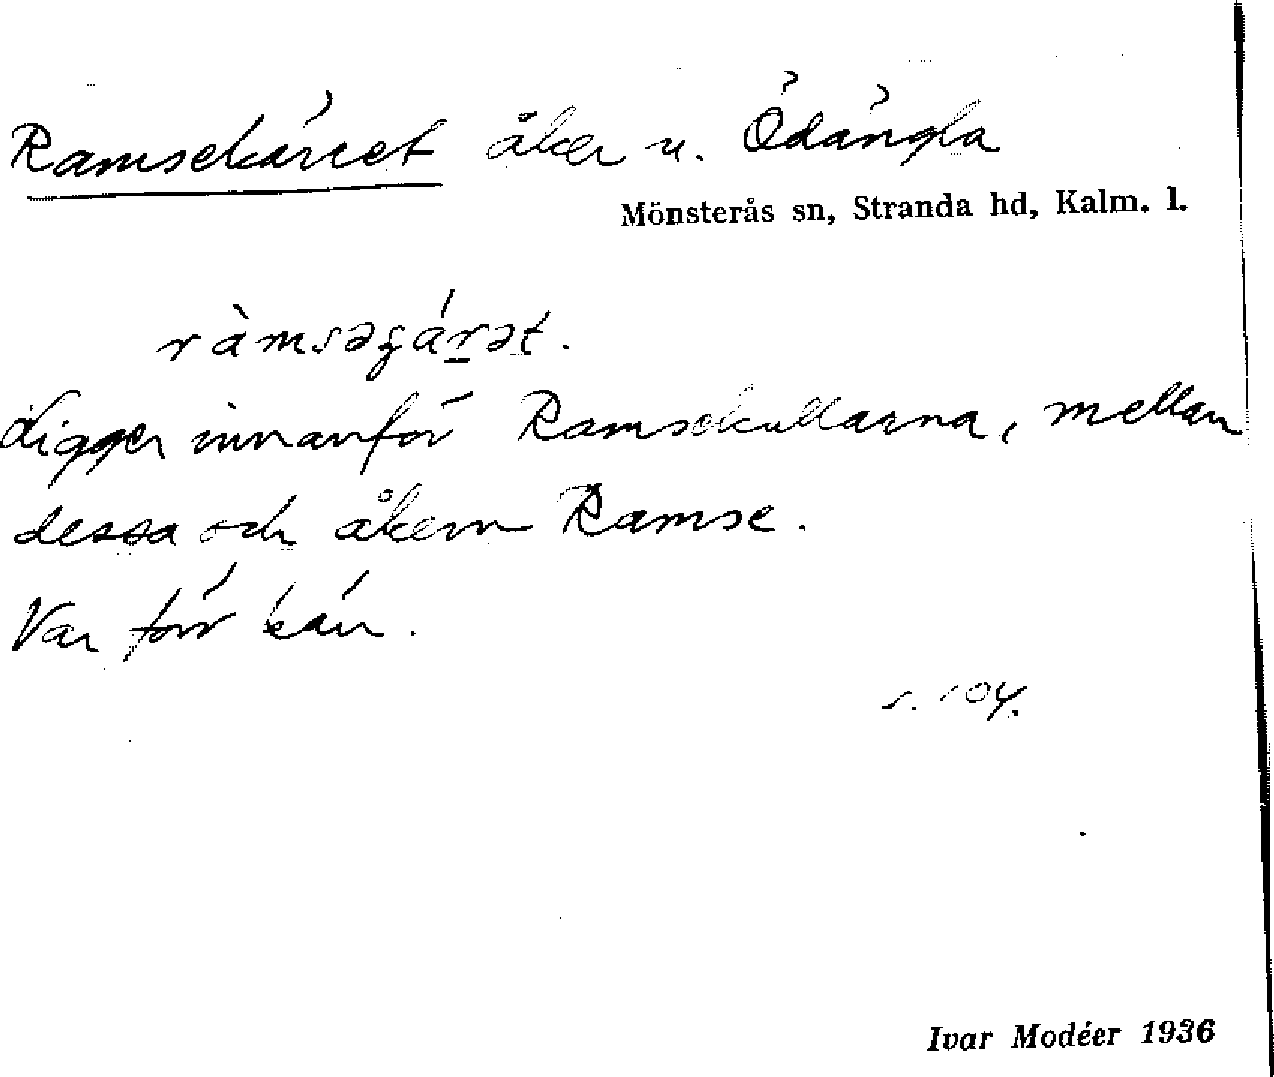 Ramsekärret åker u. Ödängla
Mönsterås sn, Stranda hd, Kalm. l.
ràmsəʂár̲ət.
Ligger innanför Ramsekullarna, mellan
dessa och åkern Ramse.
Var förr kärr.
s. 104.
Ivar Modéer 1936